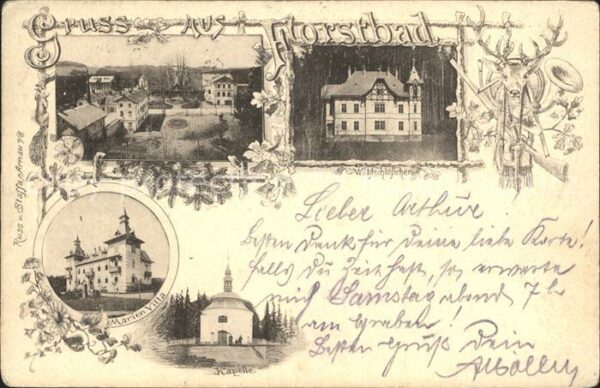 Gruss aus Forstbad.
Waldschlösschen
Marien Villa
Kapelle.
Russ u. Arnau 98
Lieber Arthur.
Besten Dank für Deine liebe Karte!
falls Du Zeit hast, so erwarte
mich Samstag abend 7 h
am Graben!
Besten Gruß Dein